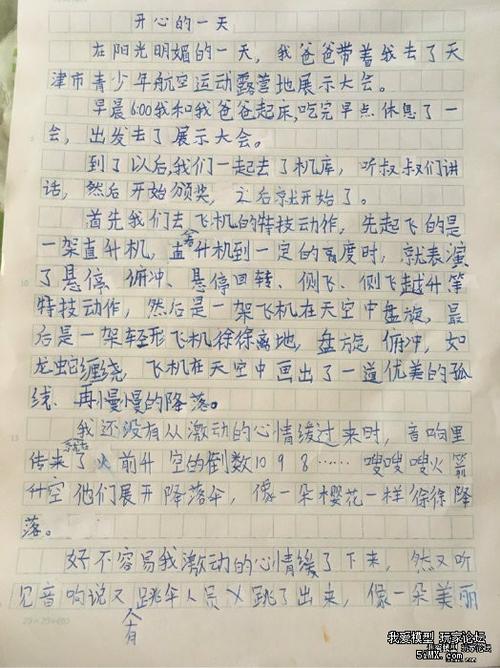 开心的一天
在阳光明媚的一天，我爸爸带着我去了天
津市青少年航空运动露营地展示大会。
早晨6:00我和我爸爸起床,吃完早点休息了一
会，出发去了展示大会。
到了以后,我们一起去了机库，听叔叔们讲
话，然后开始颁奖，之后就开始了。
首先我们去看飞机的特技动作，先起飞的是
一架直升机，直升机到一定的高度时，就表演
了悬停、俯冲、悬停回转、侧飞、侧飞越升等
特技动作，然后是一架飞机在天空中盘旋，最
后是一架轻形飞机徐徐离地，盘旋、俯冲，如
龙蛇缠绕，飞机在天空中画出了一道优美的弧
线、再慢慢的降落。
我还没有从激动的心情缓过来时，音响里
传来了火箭升空的倒数10 9 8……嗖嗖嗖火箭
升空他们展开降落伞，像一朵樱花一样徐徐降
落。
好不容易我激动的心情缓了下来，然又听
见音响说又有跳伞人员跳了出来，像一朵美丽
20×20=400
我爱模型 玩家论坛
5iMX.com